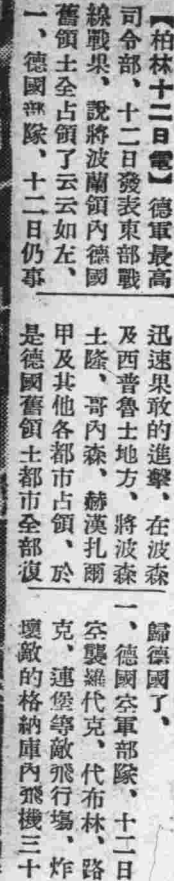 【柏林十二日電】德軍最高
司令部、十二日發表東部戰
線戰果、說將波蘭領內德國
舊領土全占領了云云如左、
一、德國部隊、十二日仍事
迅速果敢的進擊、在波森
及西普魯士地方、將波森
土隆、哥內森、赫漢扎爾
甲及其他各都市占領、於
是德國舊領土都市全部復
歸德國了、
一、德國空軍部隊、十二日
空襲羅代克、代布林、路
克、連堡等敵飛行場、炸
壞敵的格納庫內飛機三十